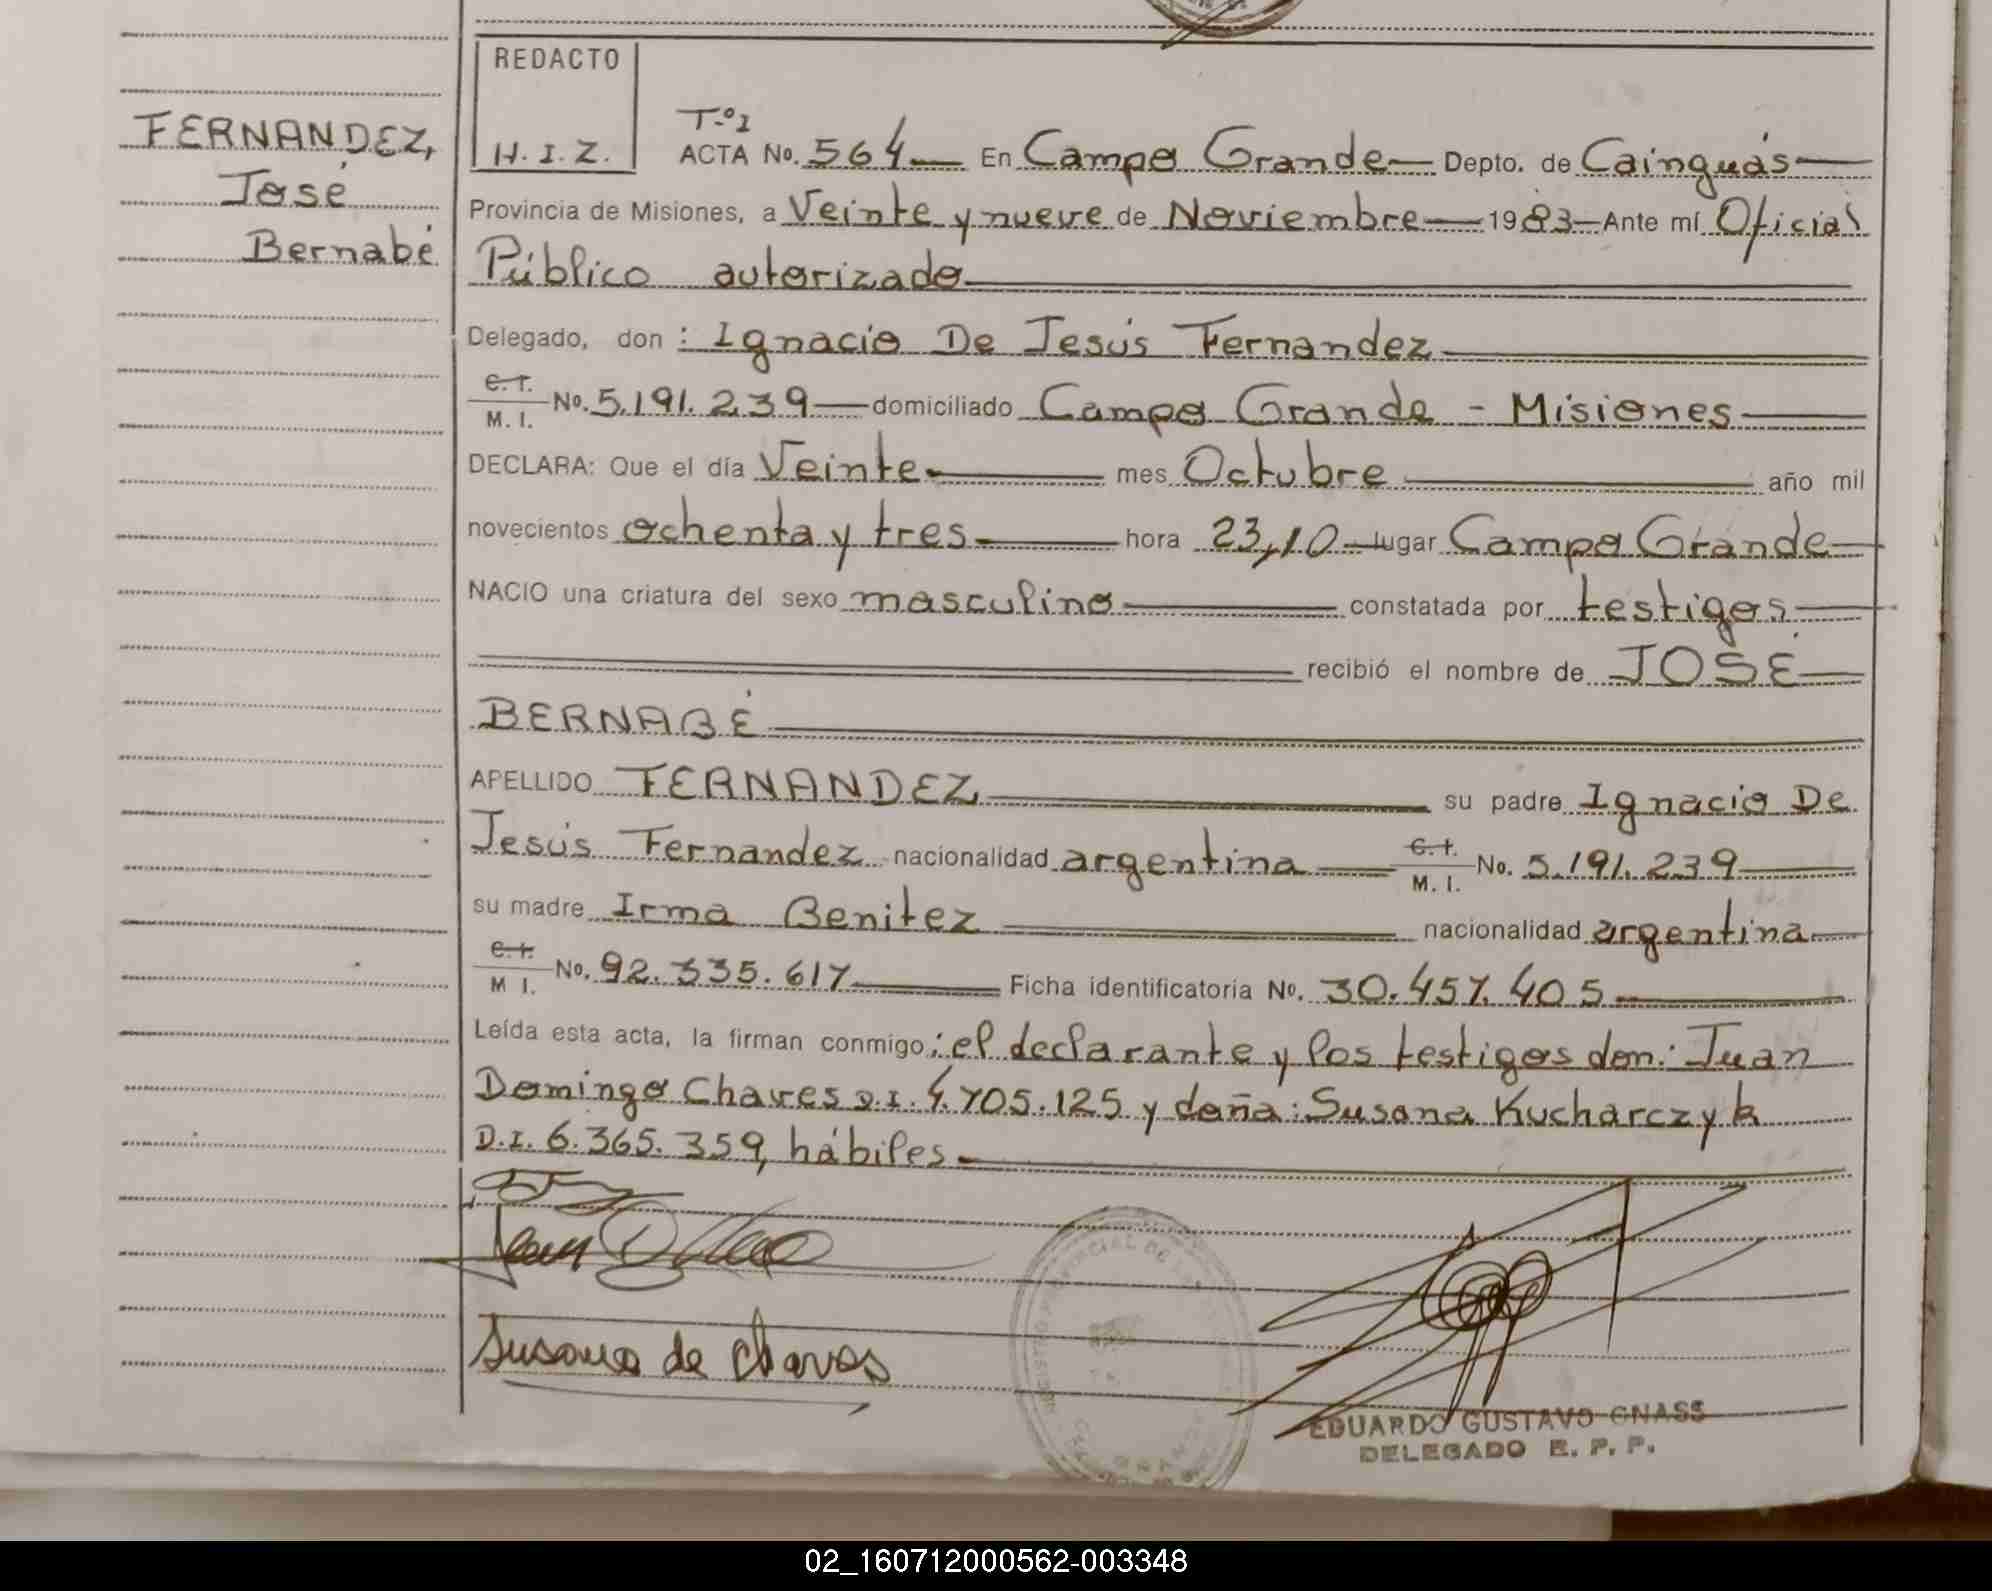 REDACTO
H. I. Z.
FERNANDEZ,
José
Bernabé
T.º1
ACTA No. 564 En Campo Grande Depto. de Cainguás
Provincia de Misiones, a Veinte y nueve de Noviembre 1983 Ante mí Oficial
Público autorizado
Delegado, don : Ignacio De Jesús Fernandez
C.I. M. I. No. 5.191.239 domiciliado Campo Grande - Misiones
DECLARA: Que el día Veinte mes Octubre año mil
novecientos ochenta y tres hora 23,10 lugar Campo Grande
NACIO una criatura del sexo masculino constatada por testigos
recibió el nombre de JOSÉ
BERNABÉ
APELLIDO FERNANDEZ su padre Ignacio De
Jesús Fernandez nacionalidad argentina C.I. M. I. No. 5.191.239
su madre Irma Benitez nacionalidad argentina
C.I. M I. No. 92.335.617 Ficha identificatoria No. 30.457.405
Leída esta acta, la firman conmigo; el declarante y los testigos don: Juan
Domingo Chaves D.I. 4.705.125 y doña: Susana Kucharczyk
D.I. 6.365.359, hábiles
Susana de Chaves
REGISTRO PROVINCIAL DE LAS
EDUARDO GUSTAVO GNASS
DELEGADO R. P. P.
02_160712000562-003348